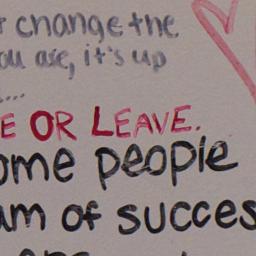 change the
you are, it's up
....
E OR LEAVE.
ome people
am of succes